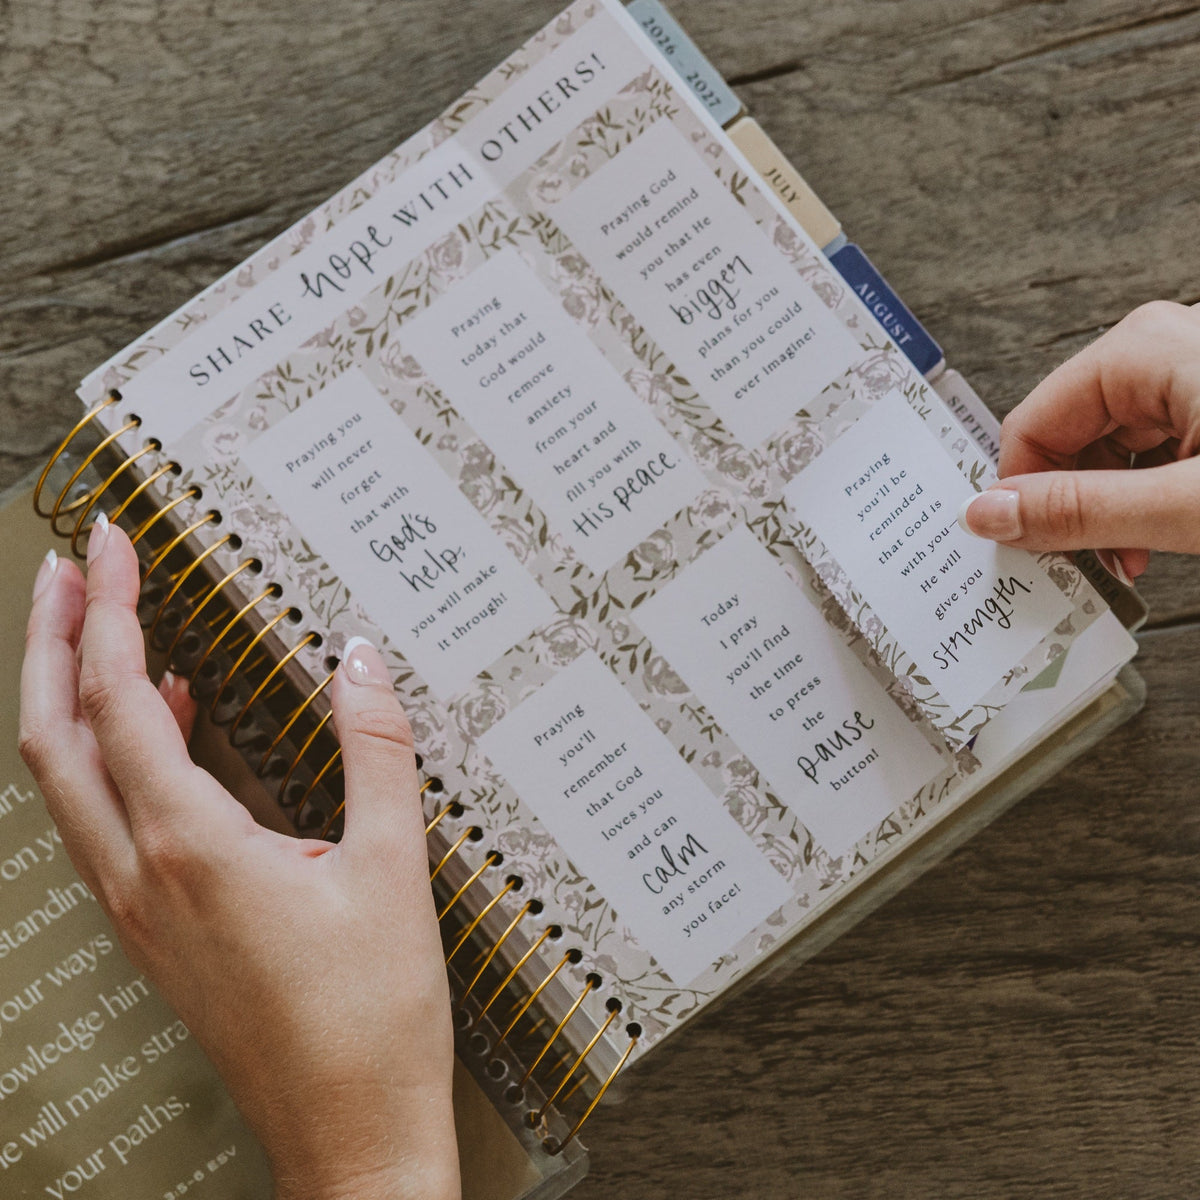 SHARE hope WITH OTHERS!
Praying you
will never
forget
that with
God's
help,
you will make
it through!
Praying
today that
God would
remove
anxiety
from your
heart and
fill you with
His peace.
Praying God
would remind
you that He
has even
bigger
plans for you
than you could
ever imagine!
Praying
you'll
remember
that God
loves you
and can
calm
any storm
you face!
Today
I pray
you'll find
the time
to press
the
pause
button!
Praying
you'll be
reminded
that God is
with you—
He will
give you
strength.
2026 – 2027
JULY
AUGUST
SEPTEM
OBER
art,
on yo
standing
your ways
owledge him
he will make stra
your paths.
3:5–6 ESV